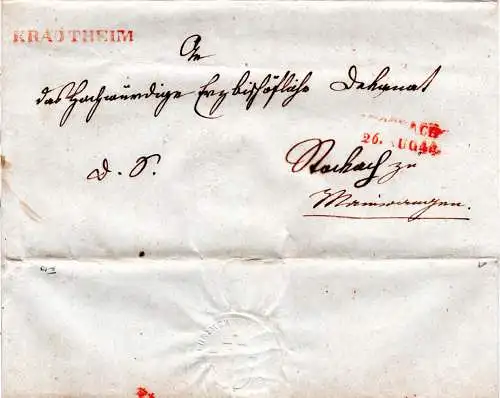 KRAUTHEIM
An
das Hochwürdige Erzbischöfliche Dekanat
26. AUG 44
D. S.
Stockach zu
Mainwangen.